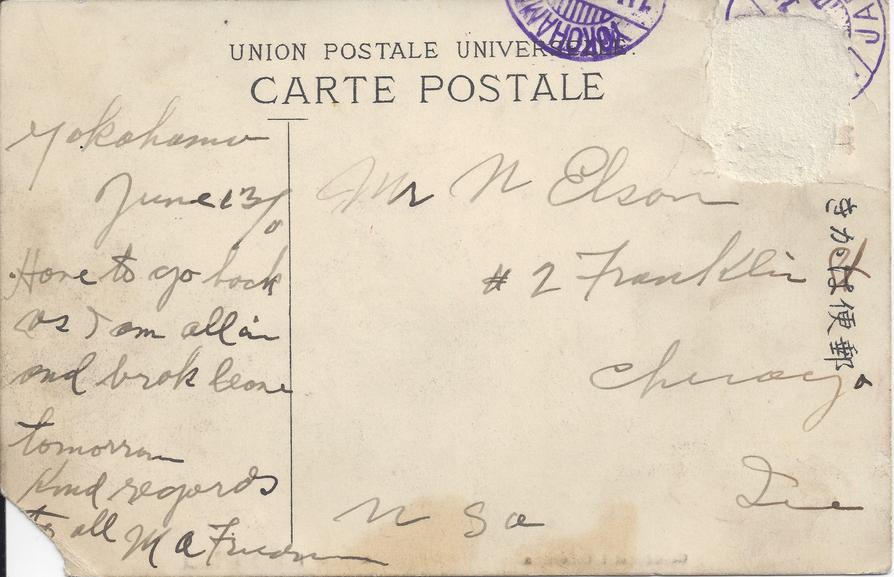 YOKOHAMA
JAPAN
UNION POSTALE UNIVERSELLE.
CARTE POSTALE
郵便はかき
Yokohama
June 13/10
Have to go back
as I am all in
and brok leave
tomorrow
Kind regards
to all M A
Mr N Elson
# 2 Franklin St
Chicago
Ill
U S a